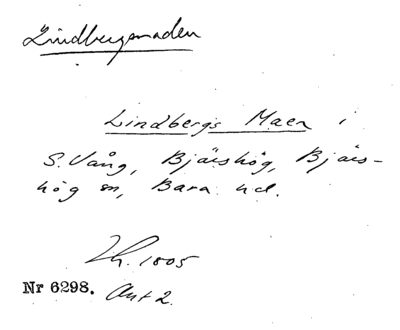 Lindbergsmaden
Lindbergs Maen i
S. Vång, Bjärshög, Bjärs-
hög sn, Bara hd.
1805
Nr 6298. Akt 2.